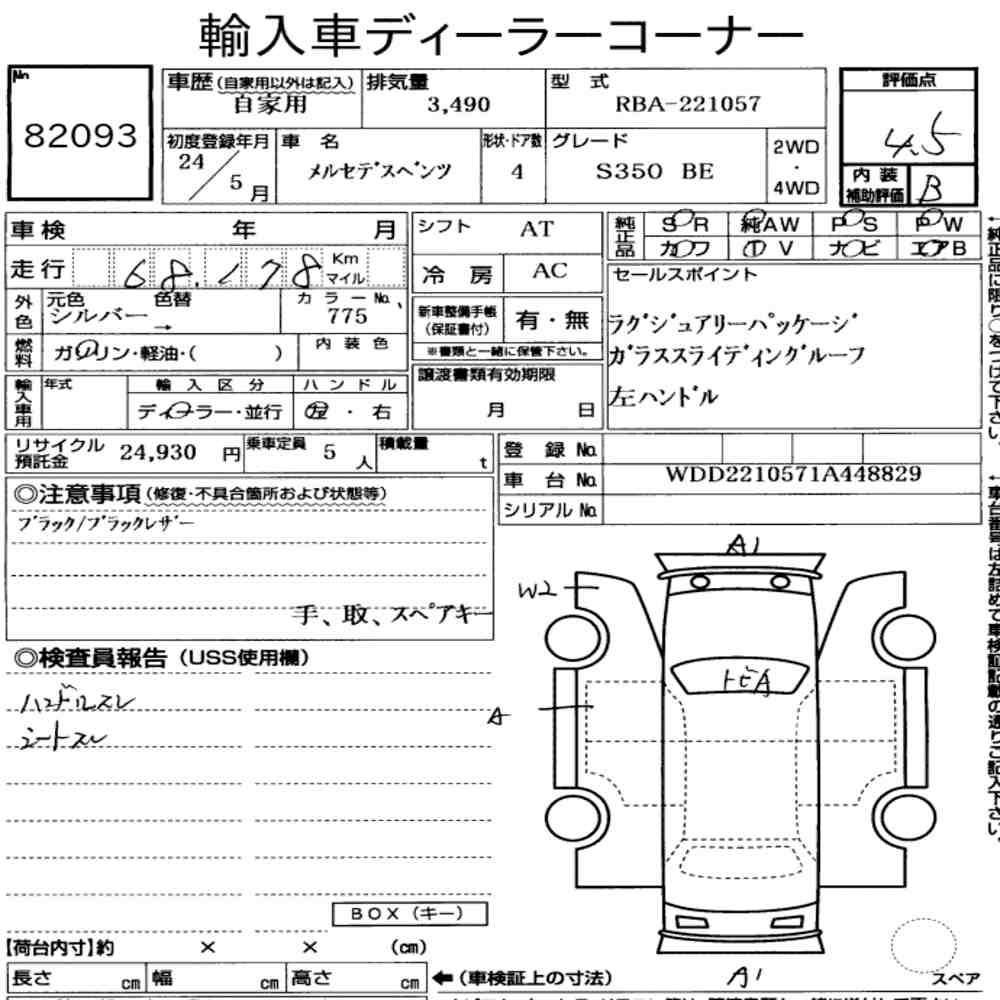 輸入車ディーラーコーナー
No. 82093
車歴 (自家用以外は記入) 自家用
排気量 3,490
型式 RBA-221057
評価点 4.5
初度登録年月 24/5月
車名 メルセデスベンツ
形状・ドア数 4
グレード S350 BE
2WD・4WD
内装補助評価 B
車検 年 月
シフト AT
純正品 SR 純AW PS PW
カワ TV ナビ エアB
走行 68,178 Km マイル
冷房 AC
セールスポイント
ラグジュアリーパッケージ
ガラススライディングルーフ
左ハンドル
外色 元色 シルバー 色替 → カラーNo. 775
新車整備手帳(保証書付) 有・無
※書類と一緒に保管下さい。
燃料 ガソリン・軽油・( ) 内装色
譲渡書類有効期限 月 日
輸入車用 年式 輸入区分 ディーラー・並行 ハンドル 左・右
リサイクル預託金 24,930円 乗車定員 5人 積載量 t
登録No.
車台No. WDD2210571A448829
シリアルNo.
◎注意事項 (修復・不具合箇所および状態等)
ブラック/ブラックレザー
手、取、スペアキー
◎検査員報告 (USS使用欄)
ハンドルスレ
シートスレ
A1
W2
トビA
A
A1
BOX (キー)
【荷台内寸】約 × × (cm)
長さ cm 幅 cm 高さ cm
←(車検証上の寸法)
スペア
←純正品に限り○をつけて下さい。
←車台番号は左詰めで車検証記載の通りご記入下さい。